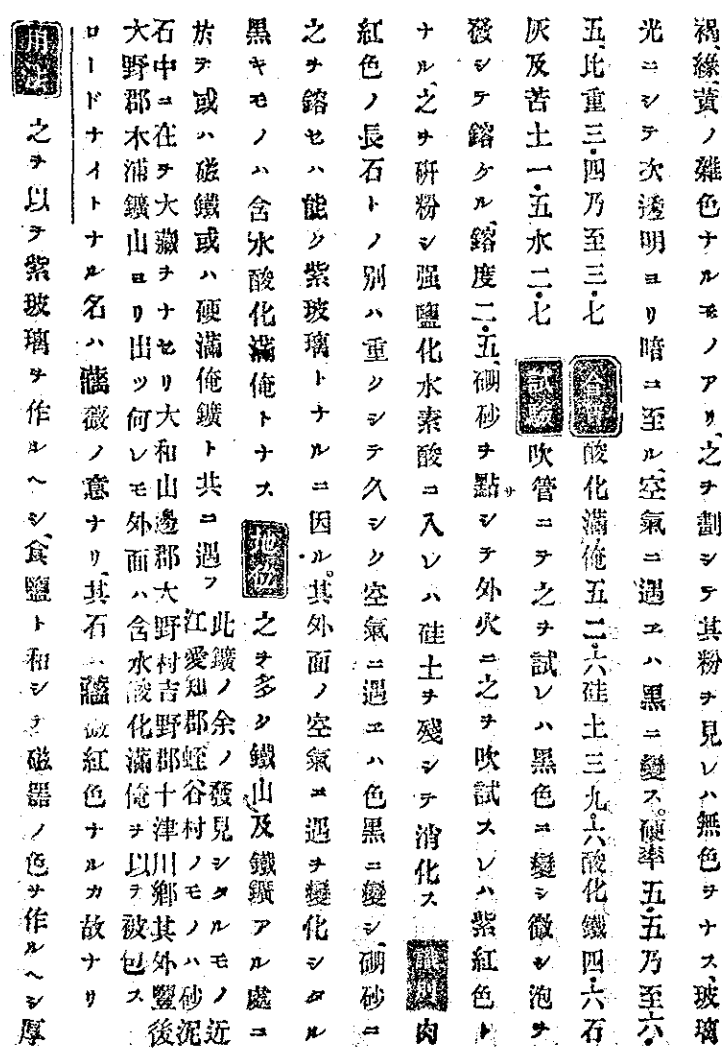 褐綠黃ノ雜色ナルモノアリ、之ヲ劃シテ其粉ヲ見レハ無色ヲナス、玻璃
光ニシテ次透明ヨリ暗ニ至ル、空氣ニ遇エハ黑ニ變ス。硬率五.五乃至六.
五、比重三.四乃至三.七 酸化滿俺五二.六硅土三九.六酸化鐵四.六石
灰及苦土一.五水二.七 試驗 吹管ニテ之ヲ試レハ黑色ニ變シ微シ泡ヲ
發シテ鎔ケル、鎔度二.五、硼砂ヲ點シテ外火ニ之ヲ吹試スレハ紫紅色ト
ナル、之ヲ硏粉シ强鹽化水素酸ニ入レハ硅土ヲ殘シテ消化ス 肉
紅色ノ長石トノ別ハ重クシテ久シク空氣ニ遇エハ色黑ニ變シ、硼砂ニ
之ヲ鎔セハ能ク紫玻璃トナルニ因ル。其外面ノ空氣ニ遇ヲ變化シタル
黑キモノハ含水酸化滿俺トナス 之ヲ多ク鐵山及鐵鑛アル處ニ
於テ或ハ磁鐵或ハ硬滿俺鑛ト共ニ遇フ 此鑛ノ余ノ發見シタルモノ近
江愛知郡蛭谷村ノモノハ砂泥
石中ニ在ヲ大藏ヲナセリ大和山邊郡大野村吉野郡十津川鄕其外豐後
大野郡木浦鑛山ヨリ出ツ何レモ外面ハ含水酸化滿俺ヲ以テ被包ス
ロードナイトナル名ハ薔薇ノ意ナリ、其石ハ薔薇紅色ナルカ故ナリ
用法 之ヲ以テ紫玻璃ヲ作ルヘシ、食鹽ト和シテ磁器ノ色ヲ作ルヘシ厚